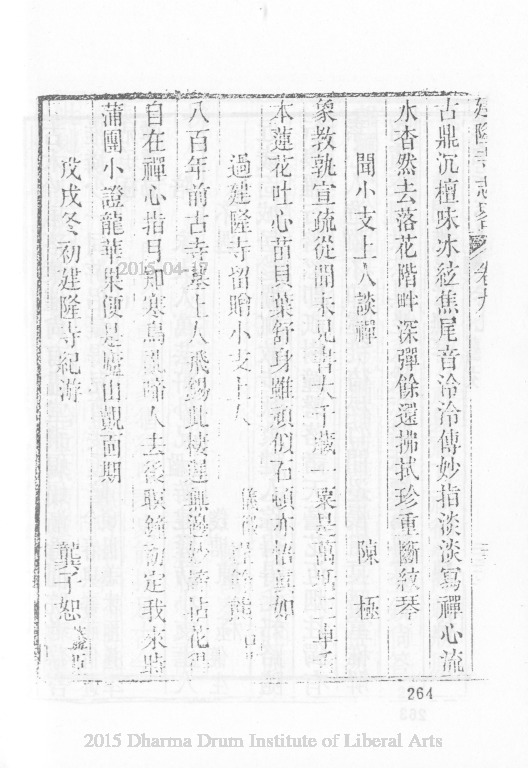 建隆寺志畧 卷九
古鼎沉檀味冰絃焦尾音泠泠傳妙指淡淡寫禪心流
水杳然去落花階畔深彈餘還拂拭珍重斷紋琴
聞小支上人談禪 陳極
象教孰宣疏從聞未見書大千藏一粟是萬 三車
本蓮花吐心苗貝葉舒身雖頑似石頓亦悟真如
過建隆寺留贈小支上人 熊
八百年前古寺基上人飛錫此棲遲無邊妙 拈花
自在禪心指月知寒鳥亂啼人去後暝鐘 定我來時
蒲團小證龍華果便是廬山覿面期
戊戌冬初建隆寺紀游 龔子恕
264
2015-04-
2015 Dharma Drum Institute of Liberal Arts